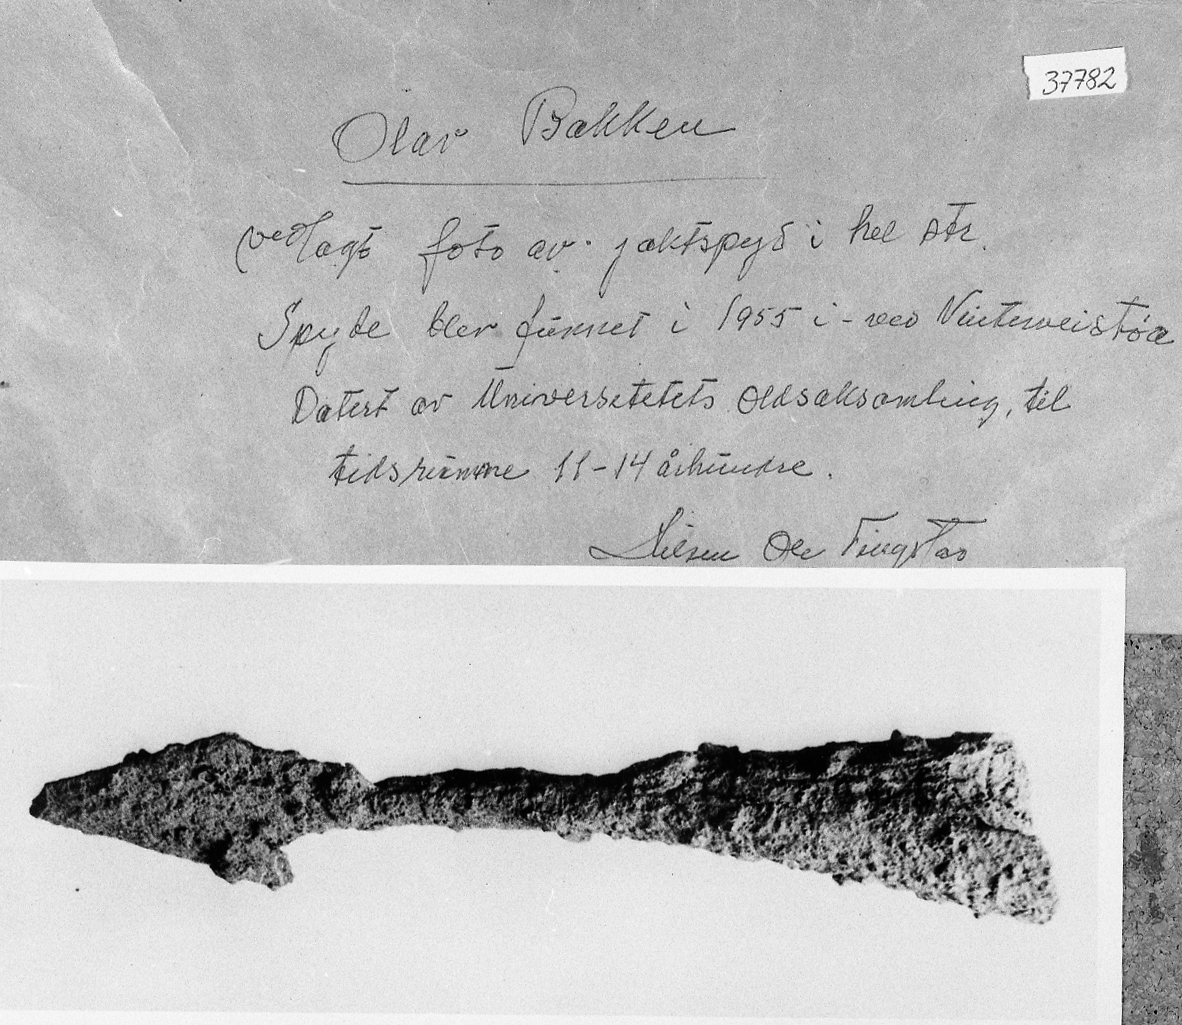 37782
Olav Bakken
vedlagt foto av jaktspyd i hel str.
Spyde blev funnet i 1955 i - ved Vinterveistøa
Datert av Universitetets Oldsaksamling, til
tidsrumme 11-14 århundre.
Hilsen Ole Tingstad